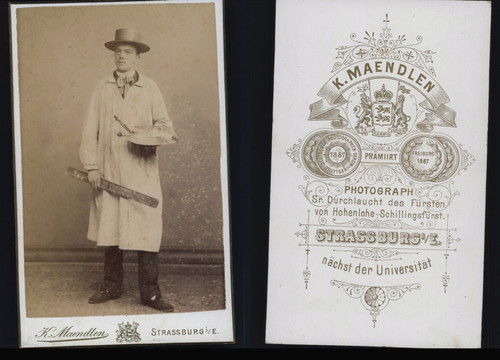 K. Maendlen STRASSBURG i/E.
K. MAENDLEN
1887
PRÄMIIRT
FREIBURG
1887
PHOTOGRAPH
Sr. Durchlaucht des Fürsten
von Hohenlohe-Schillingsfürst.
STRASSBURG i/E.
nächst der Universität